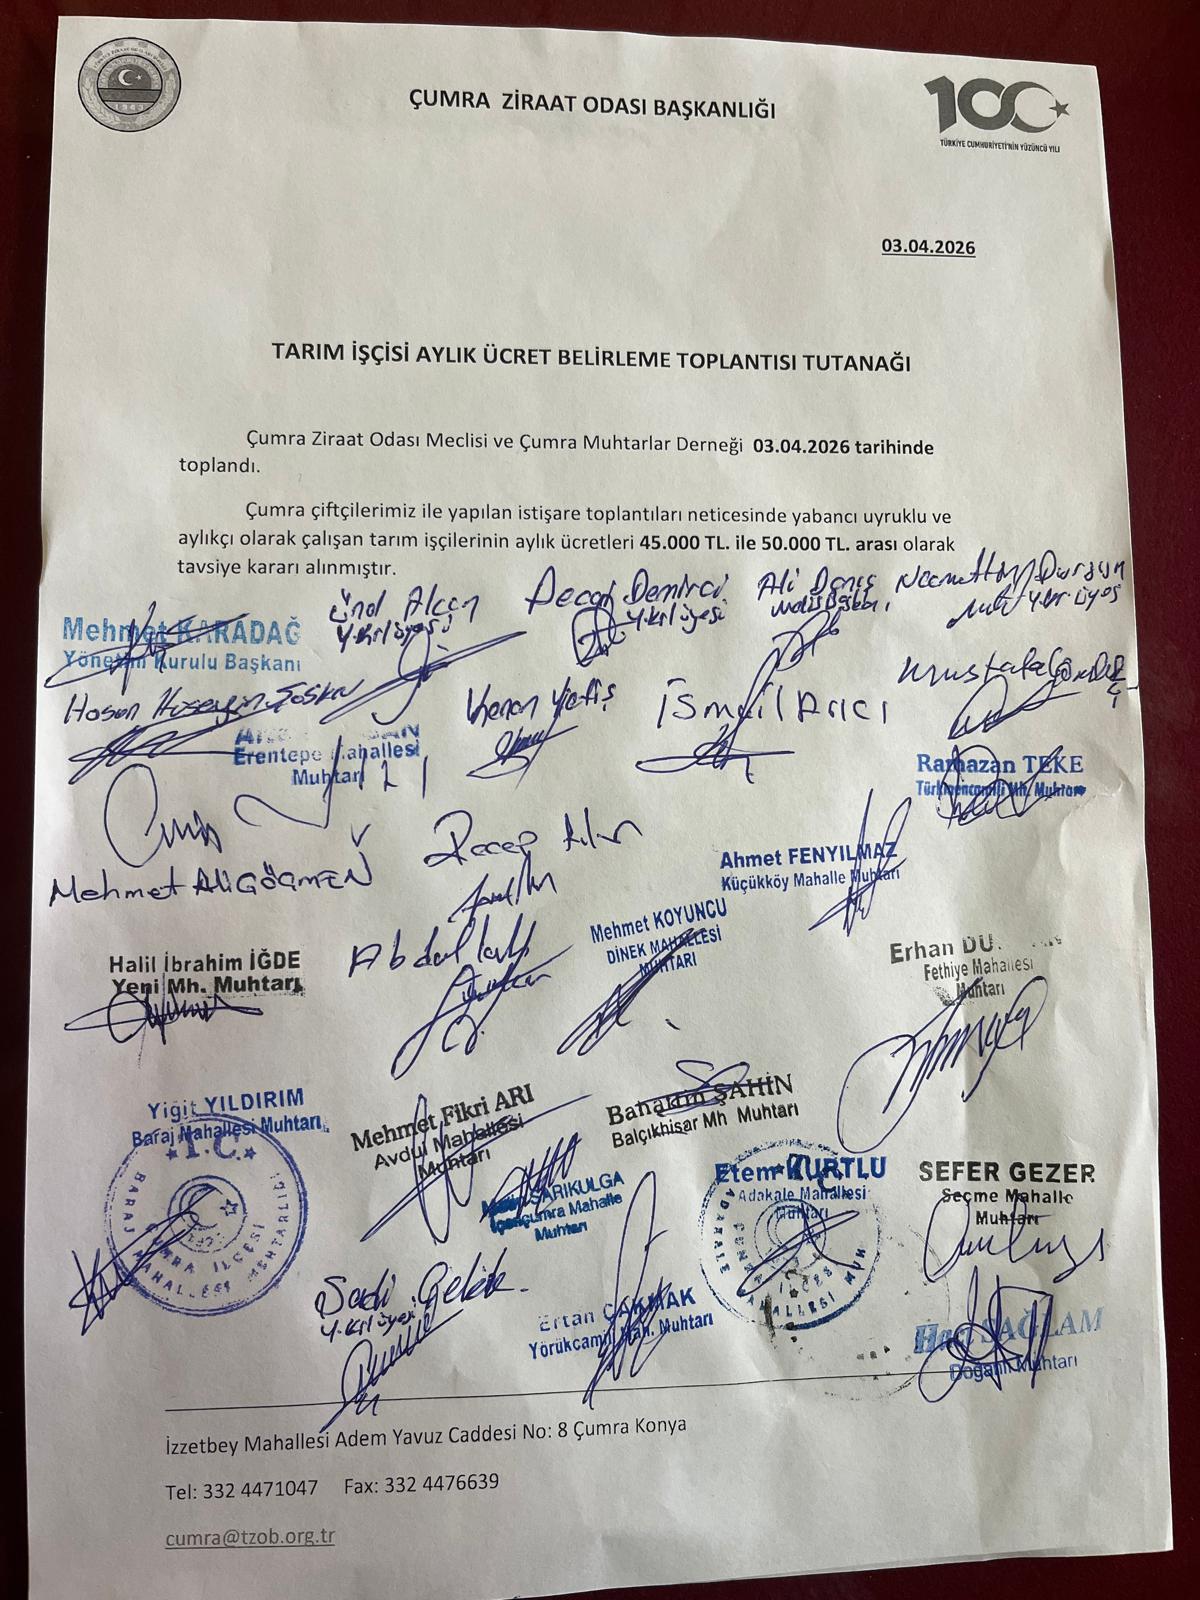 ÇUMRA ZİRAAT ODASI BAŞKANLIĞI
100
TÜRKİYE CUMHURİYETİ'NİN YÜZÜNCÜ YILI
03.04.2026
TARIM İŞÇİSİ AYLIK ÜCRET BELİRLEME TOPLANTISI TUTANAĞI
Çumra Ziraat Odası Meclisi ve Çumra Muhtarlar Derneği 03.04.2026 tarihinde
toplandı.
Çumra çiftçilerimiz ile yapılan istişare toplantıları neticesinde yabancı uyruklu ve
aylıkçı olarak çalışan tarım işçilerinin aylık ücretleri 45.000 TL. ile 50.000 TL. arası olarak
tavsiye kararı alınmıştır.
Mehmet KARADAĞ
Yönetim Kurulu Başkanı
Demirci
Y.Krl üyesi
Ali
İsmail Arıcı
Mustafa
Erentepe Mahallesi
Muhtarı
Ramazan TEKE
Mh. Muhtarı
Mehmet Ali GÖÇMEN
Recep
Ahmet FENYILMAZ
Küçükköy Mahalle Muhtarı
Mehmet KOYUNCU
DİNEK MAHALLESİ
MUHTARI
Halil İbrahim İĞDE
Yeni Mh. Muhtarı
Erhan
Fethiye Mahallesi
Muhtarı
Yiğit YILDIRIM
Baraj Mahallesi Muhtarı
T.C.
ÇUMRA İLÇESİ
BARAJ MAHALLESİ MUHTARLIĞI
Mehmet Fikri ARI
Avdul Mahallesi
Muhtarı
ŞAHİN
Balçıkhisar Mh Muhtarı
SARIKULGA
İçeriçumra Mahalle
Muhtarı
Etem KURTLU
Adakale Mahallesi
Muhtarı
SEFER GEZER
Seçme Mahalle
Muhtarı
Sadi
Y.Krl üyesi
Ertan ÇAKMAK
Yörükcamili Mah. Muhtarı
SAĞLAM
Doğanlı Muhtarı
İzzetbey Mahallesi Adem Yavuz Caddesi No: 8 Çumra Konya
Tel: 332 4471047 Fax: 332 4476639
cumra@tzob.org.tr